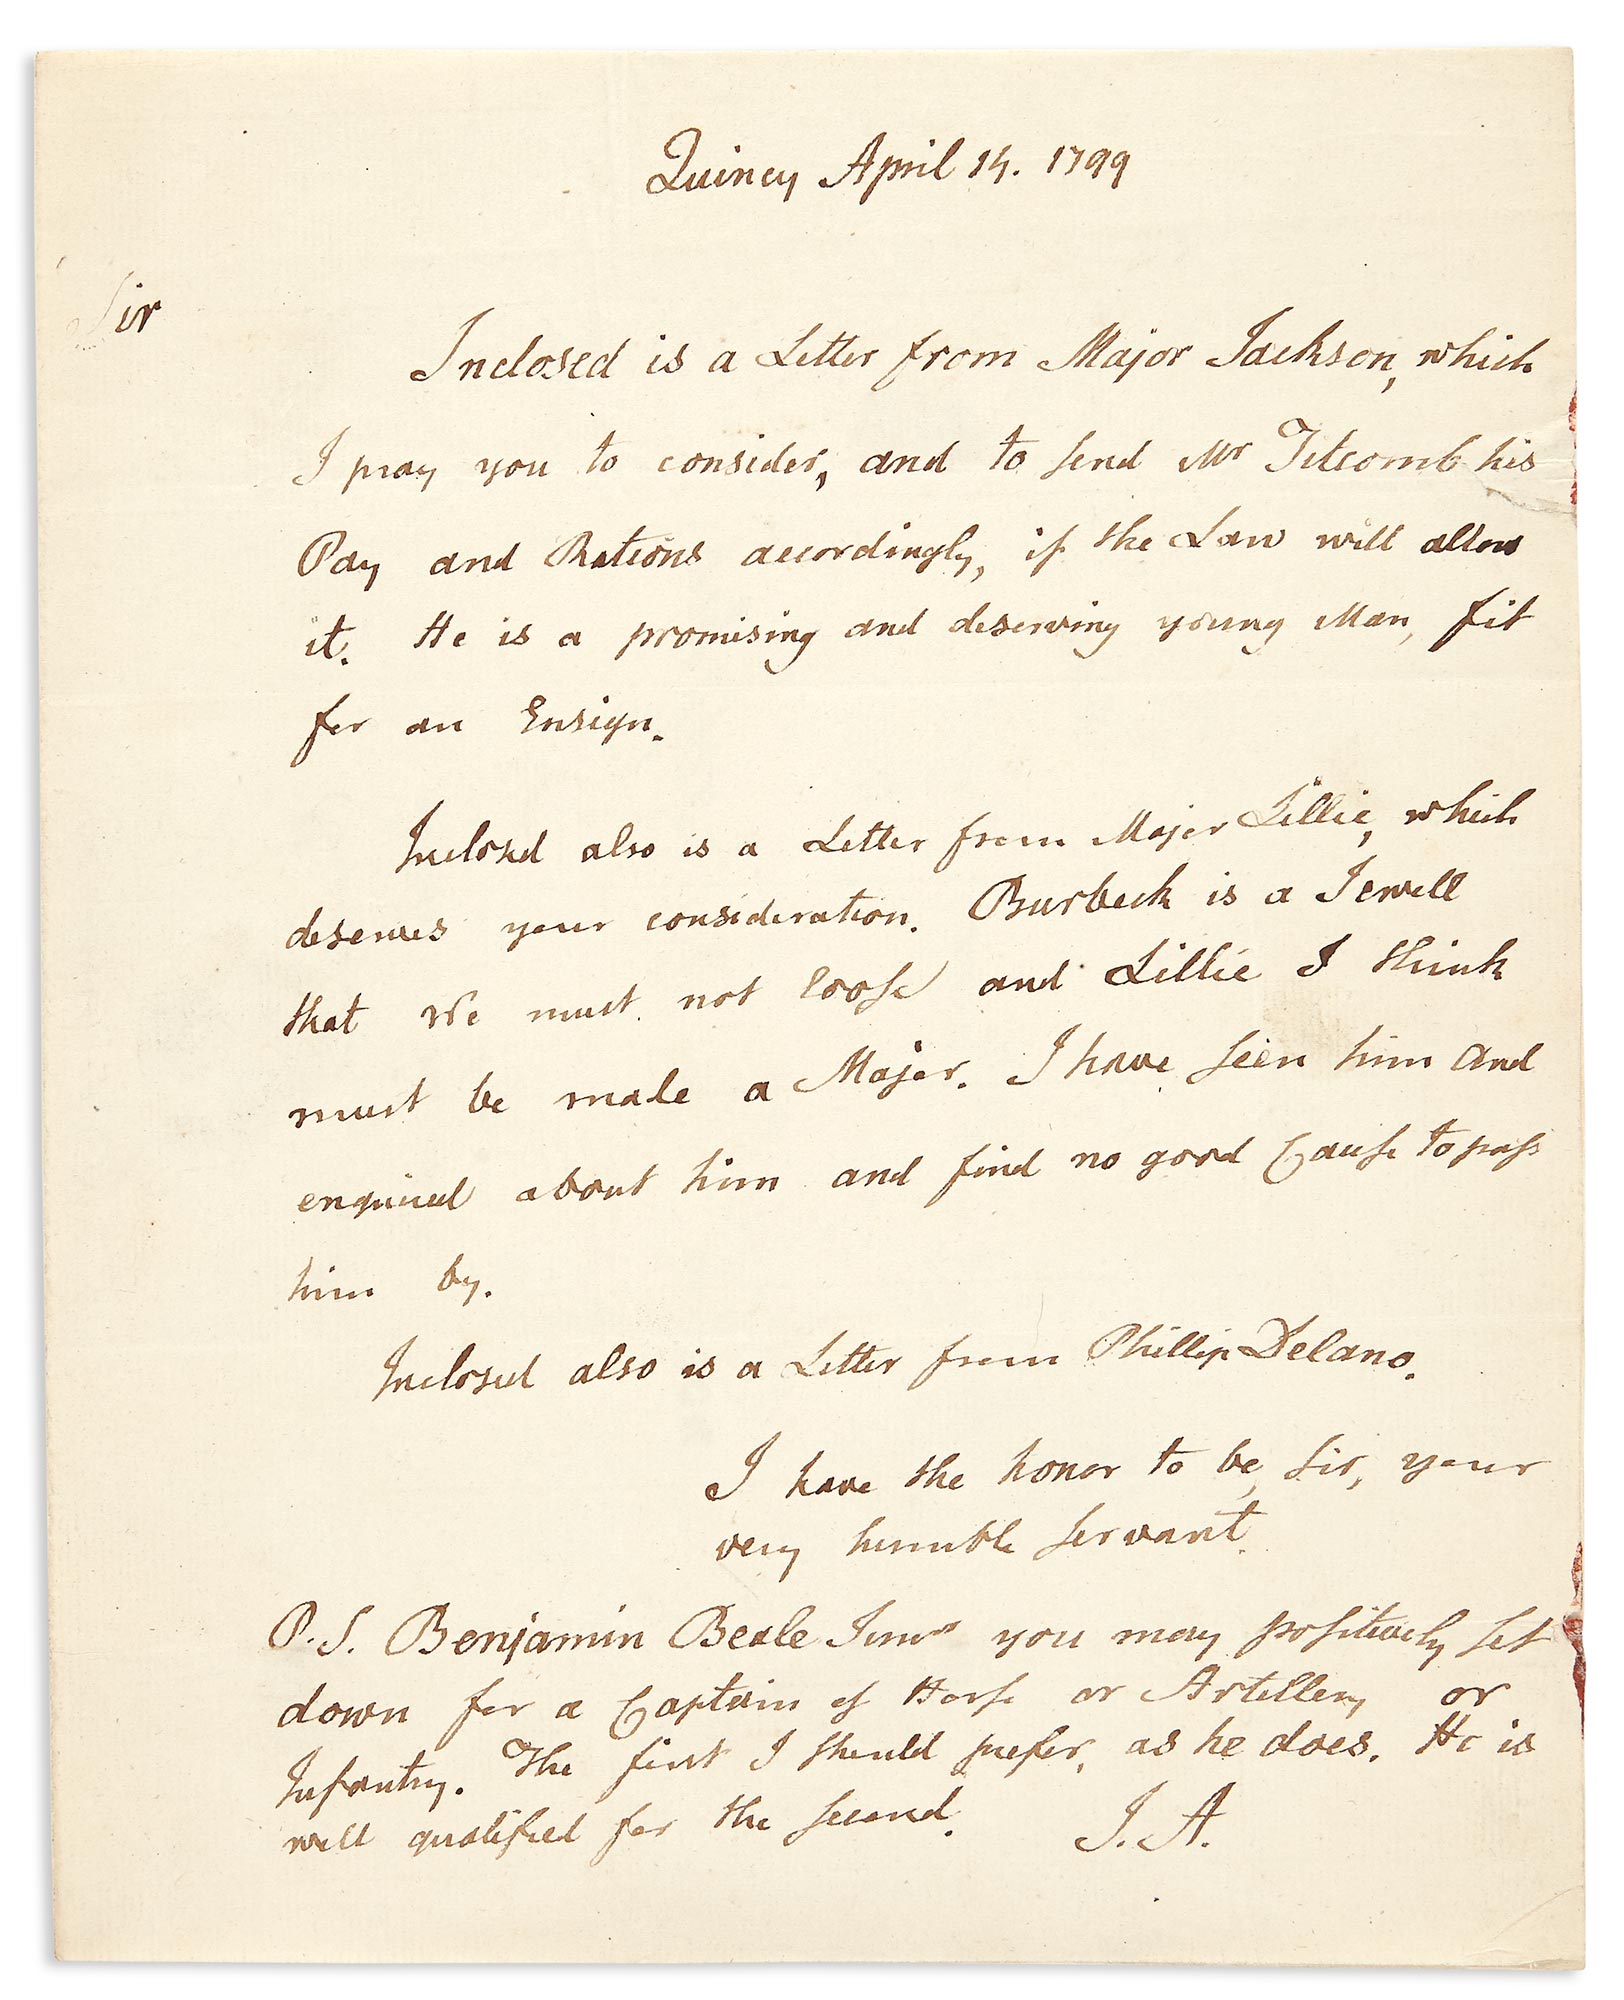 Quincy April 14. 1799
Sir
Inclosed is a Letter from Major Jackson, which
I pray you to consider, and to send Mr Titcomb his
Pay and Rations accordingly, if the Law will allow
it. He is a promising and deserving young Man, fit
for an Ensign.
Inclosed also is a Letter from Major Lillie, which
deserves your consideration. Burbeck is a Jewell
that We must not loose and Lillie I think
must be made a Major. I have seen him and
enquired about him and find no good Cause to pass
him by.
Inclosed also is a Letter from Phillip Delano.
I have the honor to be, Sir, your
very humble Servant.
P.S. Benjamin Beale Junr you may positively set
down for a Captain of Horse or Artillery or
Infantry. The first I should prefer, as he does. He is
well qualified for the second. J. A.